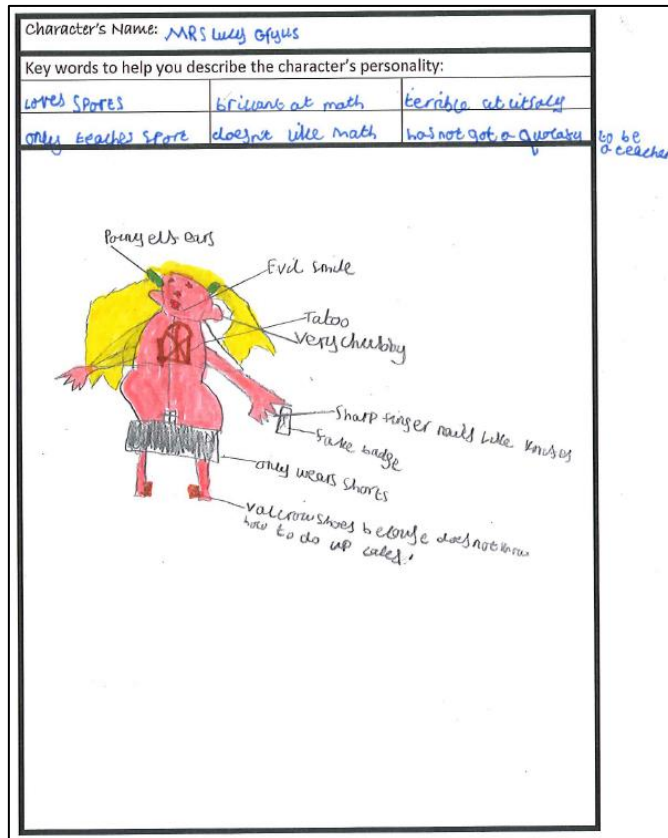 Character's Name: MRS Lucy Gfyus
Key words to help you describe the character's personality:
Loves Sports
brillant at math
terrible at
only teaches Sport
doesnt like math
has not got a to be a teacher
Poiny elfs ears
Evil Smile
Tatoo
very chubby
Sharp finger nails like knifes
fake badge
only wears shorts
valcrow shoes becouse does not know
how to do up laces!